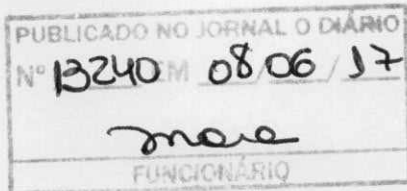 PUBLICADO NO JORNAL O DIÁRIO
Nº 13240 EM 08/06/17
FUNCIONÁRIO